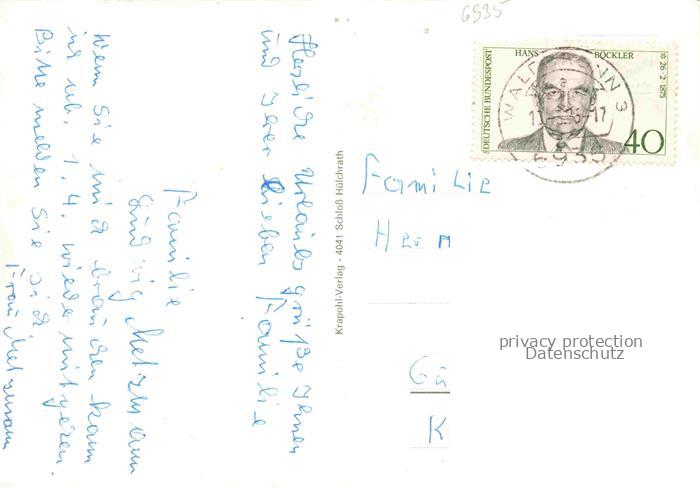 6935
DEUTSCHE BUNDESPOST
HANS BÖCKLER
* 26·2·1875
40
6935
Herzliche Urlaubsgrüße Ihnen
und Ihrer lieben Familie
Familie
Ludwig Metzmann
Wenn Sie mich brauchen kann
ich ab. 1.4. wieder mit
Bitte melden Sie sich
Frau Metzmann
Krapohl-Verlag - 4041 Schloß Hülchrath
Familie
Herm
Gü
K
privacy protection
Datenschutz